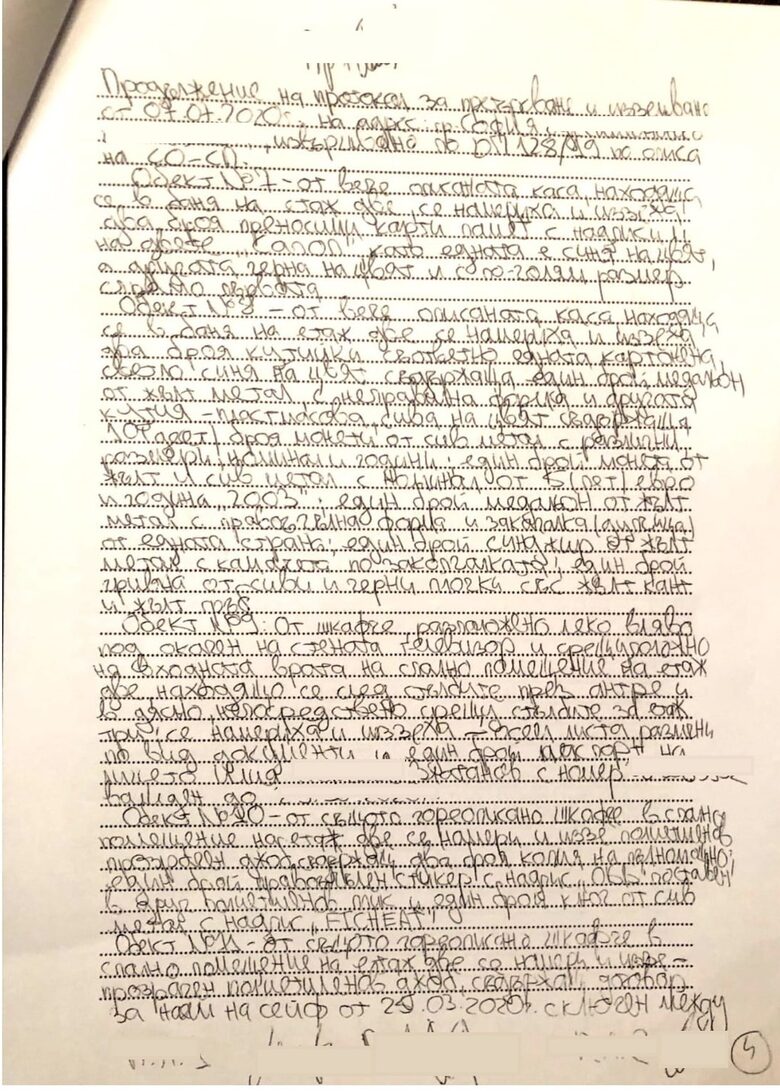 Продължение на протокол за претърсване и изземване
от 07.07.2020г. на адрес: гр. СОФИЯ,
, извършено по ДП 128/19 по описа
на СО-СП.
Обект №7 - от вече описаната каса, находяща
се в баня на етаж две, се намериха и иззеха
два броя преносими карти памет с надписи
на двете "Canon", като едната е синя на цвят,
а другата черна на цвят и с по-голям размер
спрямо първата
Обект №8 - от вече описаната каса находяща
се в баня на етаж две се намериха и иззеха
два броя кутийки съответно едната картонена,
светло синя на цвят съдържаща един брой медальон
от жълт метал с неправилна форма и другата
кутия - пластмасова, сива на цвят съдържаща
10 (десет) броя монети от сив метал с различни
размери, номинал и години; един брой монета от
жълт и сив метал с номинал от 5 (пет) евро
и година "2003"; един брой медальон от жълт
метал с правоъгълна форма и закопчалка
от едната страна; един брой синджир от жълт
метал с по закопчалката; един брой
гривна от сиви и черни плочки със жълт кант
и жълт
Обект №9: От шкафче, разположено леко вляво
под окачен на стената телевизор и срещуположно
на входната врата на спално помещение на етаж
две, находящо се след стълбите през антре и
в дясно, непосредствено срещу стълбите за етаж
три, се намериха и иззеха - листа размени
по вид документи и един брой паспорт на
лицето Златанов с номер
валиден до
Обект №10 - от същото гореописано шкафче в спално
помещение на етаж две се намери и иззе полиетиленов
прозрачен джоб, съдържащ два броя копия на пълномощно;
един брой правоъгълен стикер с надпис "ОББ" поставен
в друг полиетиленов плик и един брой ключ от сив
метал с надпис "FICHEAT",
Обект №11 - от същото гореописано шкафче в
спално помещение на етаж две се намери и иззе -
прозрачен полиетиленов джоб, съдържащ договор
за наем на сейф от 25.03.2020г. сключен между
5